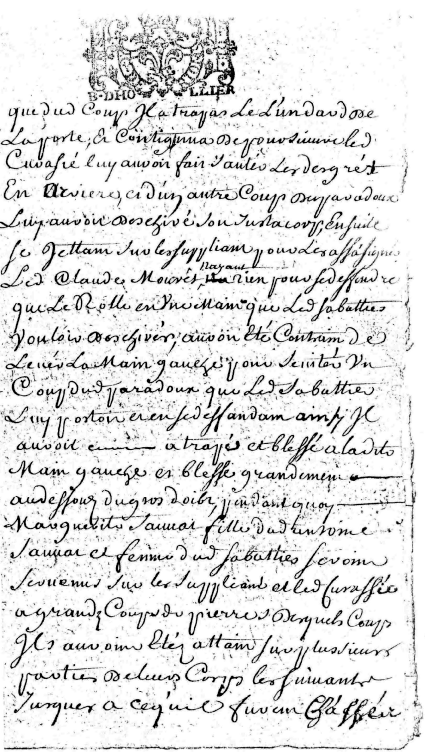 B·DHO LLIER
que dud Coup Il atrapas Le Lundard De
La porte, Et Contignua De poursuivre led
Curassié luy auroit fait sauter Les degrés
En Arriere, et d'un autre Coup Du paradoux
Luy auroit Deschiré son Justacorps, Ensuite
se Jettant sur les suppliant pour Les assasigner
Led Claude Mourés Nayant rien pour se deffendre
que Le Rolle en Une Main que Led sabatties
Vouloit Deschirer, auroit Eté Contraint De
Lever La Main gauche pour Eviter Un
Coup dud paradoux que Led sabatties
Luy portoit et en se deffandant ainsy Il
auroit atrapé et blessé a ladite
Main gauche et blessé grandement
au dessouz du gros doibt, pendant quoy
Marguerite Sauvat fille dud antoine
Sauvat et femme dud sabatties seroint
servenus sur les suppliant et led Curassié
a grands Coups de pierres Desquels Coups
Ils auroint Etéz attaint sur plusieurs
parties De leurs Corps les suivant
Jusques a ce quil furent Chassér